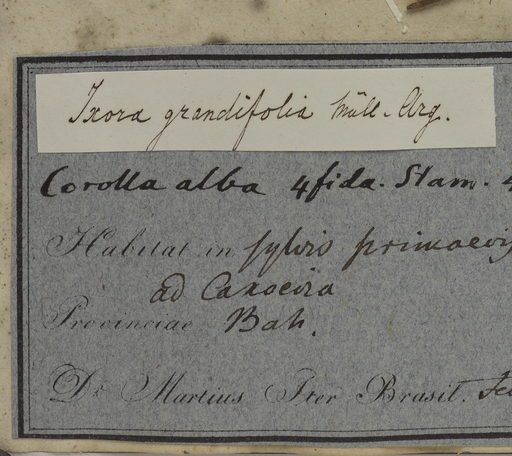 Ixora grandifolia Müll. Arg.
Corolla alba 4fida. Stam. 4
Habitat in sylvis primaevis
ad Caxoeira
Provinciae Bah.
Dr. Martius Iter Brasil.